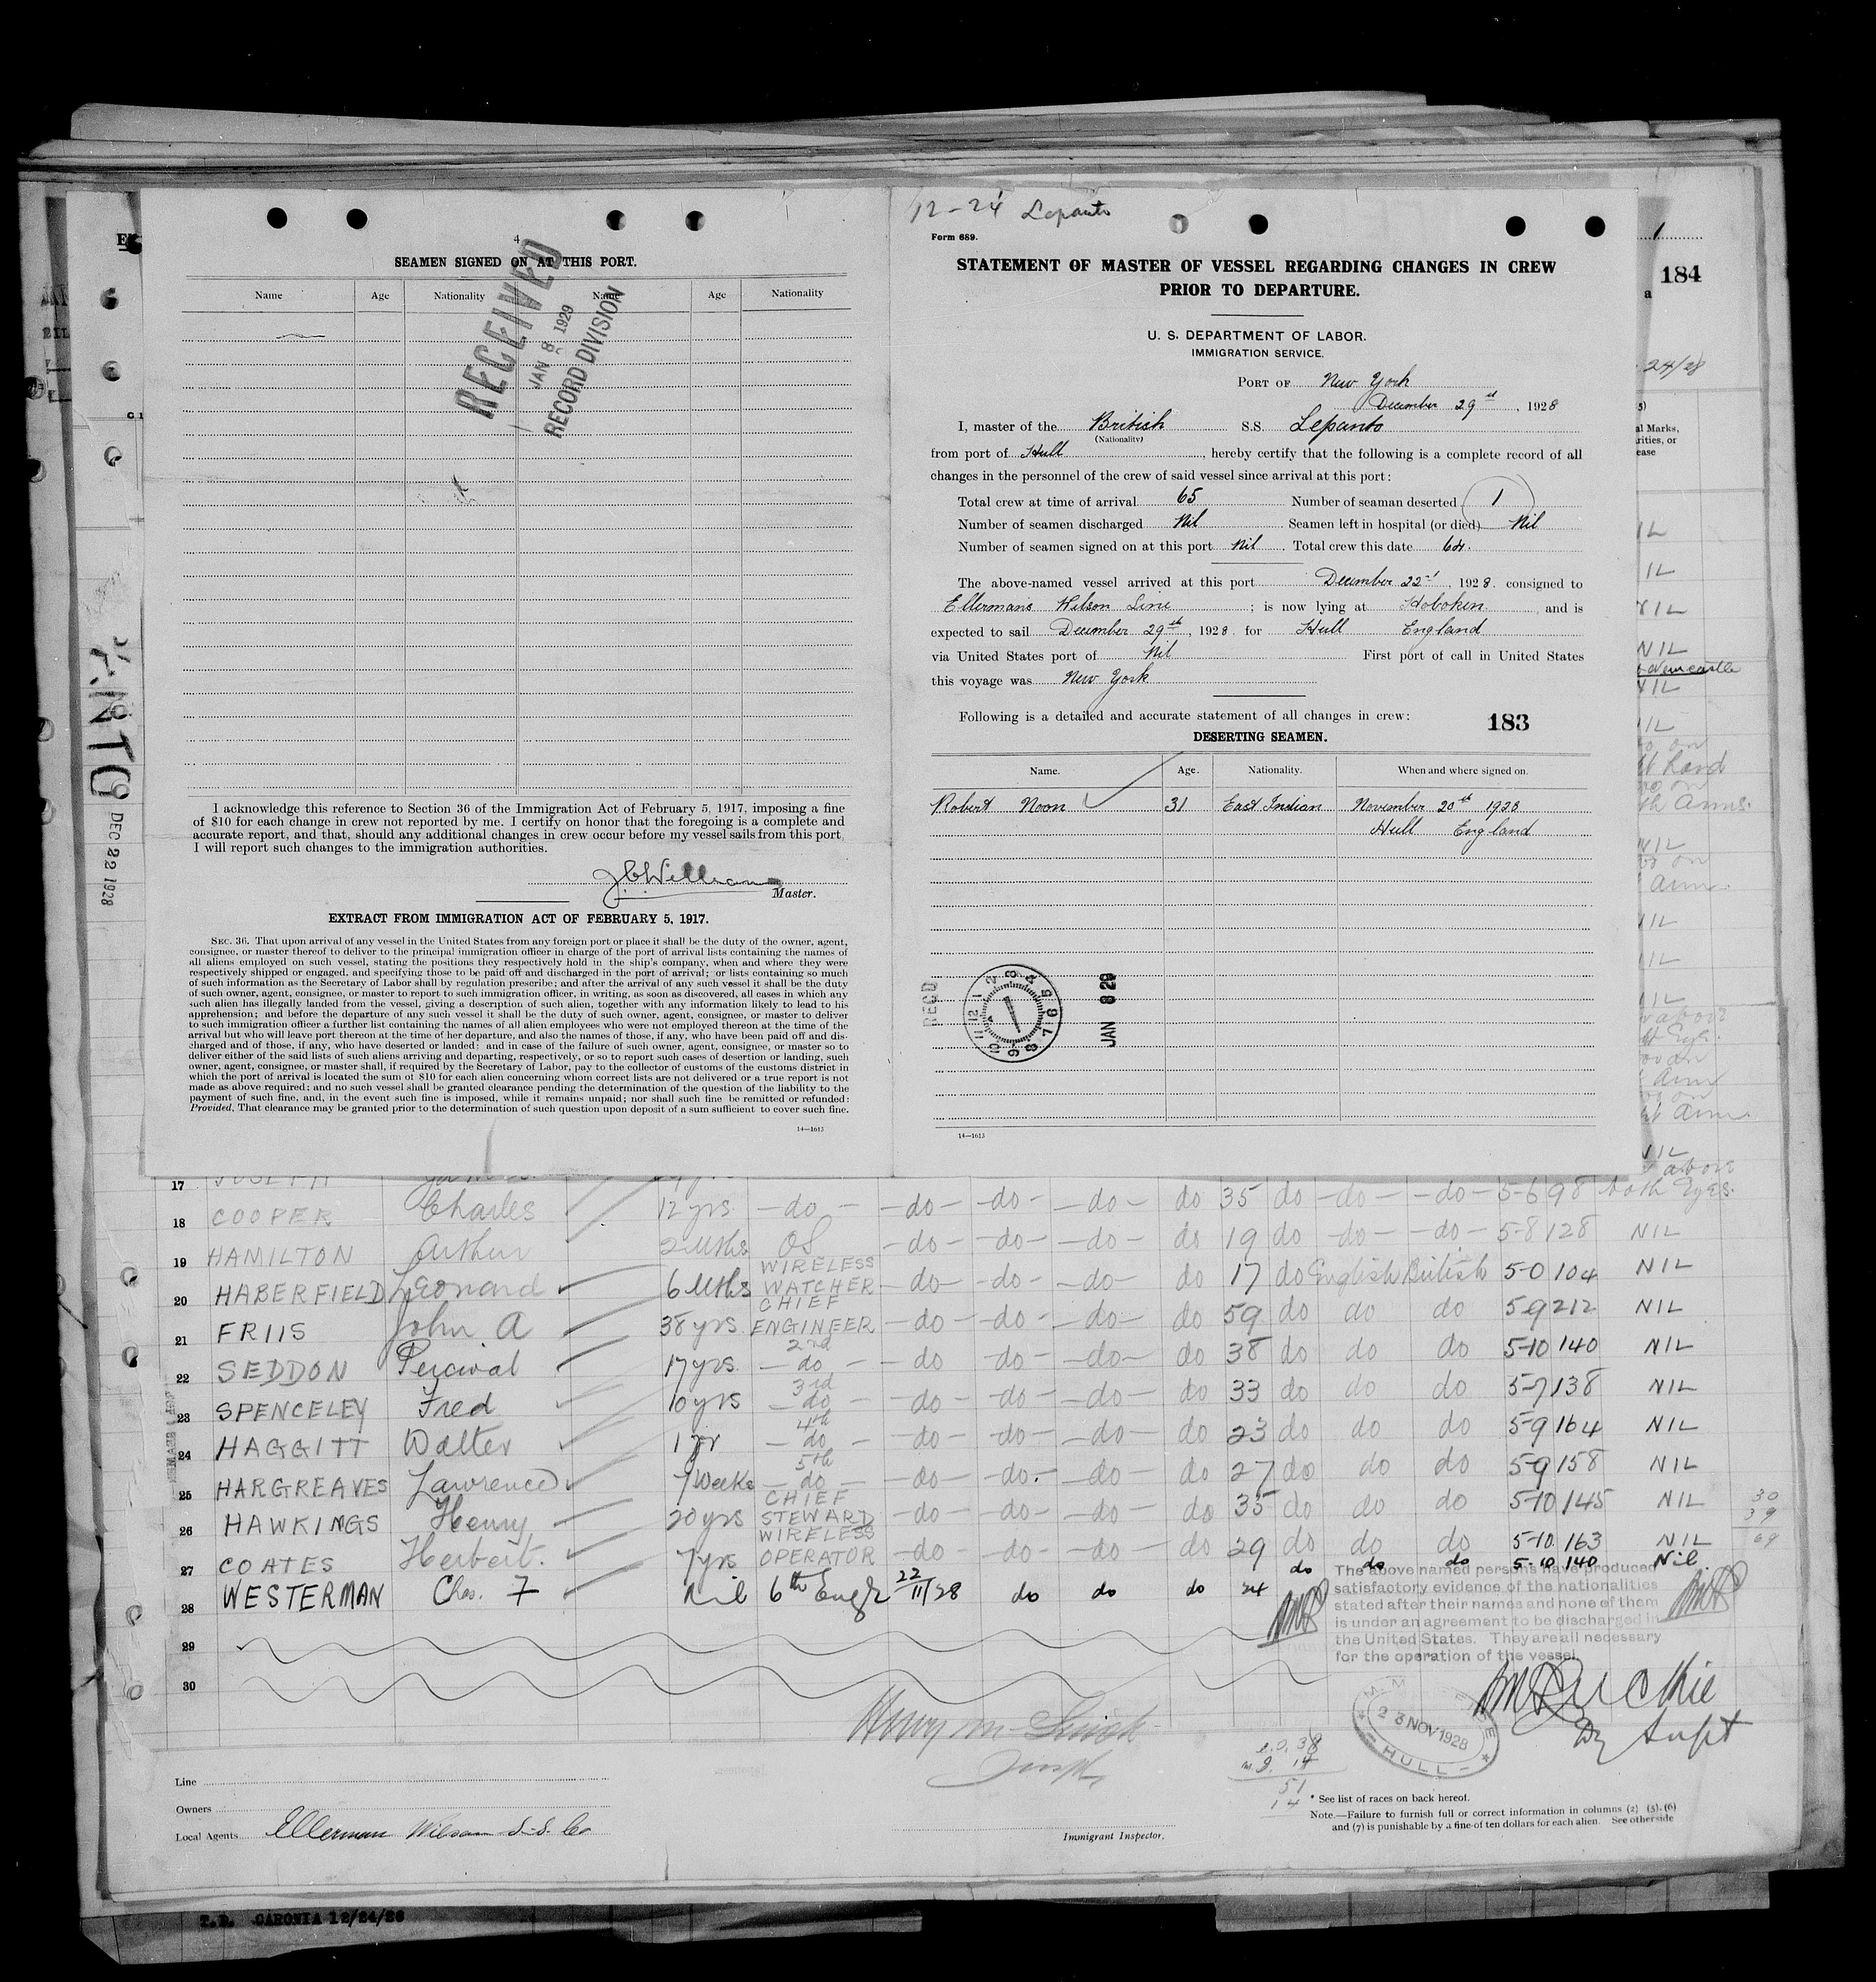 4
SEAMEN SIGNED ON AT THIS PORT.
Name Age Nationality Name Age Nationality
RECEIVED
JAN 8 1929
RECORD DIVISION
I acknowledge this reference to Section 36 of the Immigration Act of February 5, 1917, imposing a fine
of $10 for each change in crew not reported by me. I certify on honor that the foregoing is a complete and
accurate report, and that, should any additional changes in crew occur before my vessel sails from this port
I will report such changes to the immigration authorities.
Master.
EXTRACT FROM IMMIGRATION ACT OF FEBRUARY 5, 1917.
SEC. 36. That upon arrival of any vessel in the United States from any foreign port or place it shall be the duty of the owner, agent,
consignee, or master thereof to deliver to the principal immigration officer in charge of the port of arrival lists containing the names of
all aliens employed on such vessel, stating the positions they respectively hold in the ship's company, when and where they were
respectively shipped or engaged, and specifying those to be paid off and discharged in the port of arrival; or lists containing so much
of such information as the Secretary of Labor shall by regulation prescribe; and after the arrival of any such vessel it shall be the duty
of such owner, agent, consignee, or master to report to such immigration officer, in writing, as soon as discovered, all cases in which any
such alien has illegally landed from the vessel, giving a description of such alien, together with any information likely to lead to his
apprehension; and before the departure of any such vessel it shall be the duty of such owner, agent, consignee, or master to deliver
to such immigration officer a further list containing the names of all alien employees who were not employed thereon at the time of the
arrival but who will leave port thereon at the time of her departure, and also the names of those, if any, who have been paid off and dis-
charged and of those, if any, who have deserted or landed; and in case of the failure of such owner, agent, consignee, or master so to
deliver either of the said lists of such aliens arriving and departing, respectively, or so to report such cases of desertion or landing, such
owner, agent, consignee, or master shall, if required by the Secretary of Labor, pay to the collector of customs of the customs district in
which the port of arrival is located the sum of $10 for each alien concerning whom correct lists are not delivered or a true report is not
made as above required; and no such vessel shall be granted clearance pending the determination of the question of the liability to the
payment of such fine, and, in the event such fine is imposed, while it remains unpaid; nor shall such fine be remitted or refunded:
Provided, That clearance may be granted prior to the determination of such question upon deposit of a sum sufficient to cover such fine.
14—1613
12-24 Lepanto
Form 689.
STATEMENT OF MASTER OF VESSEL REGARDING CHANGES IN CREW
PRIOR TO DEPARTURE.
U. S. DEPARTMENT OF LABOR.
IMMIGRATION SERVICE.
PORT OF New York
December 29th, 1928
I, master of the British S.S. Lepanto
(Nationality)
from port of Hull, hereby certify that the following is a complete record of all
changes in the personnel of the crew of said vessel since arrival at this port:
Total crew at time of arrival 65 Number of seaman deserted 1
Number of seamen discharged Nil Seamen left in hospital (or died) Nil
Number of seamen signed on at this port Nil. Total crew this date 64.
The above-named vessel arrived at this port December 22nd, 1928. consigned to
Ellermans Wilson Line; is now lying at Hoboken and is
expected to sail December 29th, 1928 for Hull England
via United States port of Nil First port of call in United States
this voyage was New York
Following is a detailed and accurate statement of all changes in crew: 183
DESERTING SEAMEN.
Name. Age. Nationality. When and where signed on.
Robert Noon 31 East Indian November 20th 1928
Hull England
REC'D
JAN 8 29
14—1613
184
24/28
DEC 22 1928
17
18 COOPER Charles 12 yrs -do- -do- -do- -do- do 35 do -do- -do- 5-6 98 both Eyes.
19 HAMILTON Arthur 2 Mths OS -do- -do- -do- do 19 do -do- -do- 5-8 128 NIL
20 HABERFIELD Leonard 6 Mths WIRELESS WATCHER -do- -do- -do- do 17 do English British 5-0 104 NIL
21 FRIIS John A 38 yrs CHIEF ENGINEER -do- -do- -do- do 59 do do do 5-9 212 NIL
22 SEDDON Percival 17 yrs 2nd -do- -do -do- -do- do 38 do do do 5-10 140 NIL
23 SPENCELEY Fred 10 yrs 3rd -do- -do- -do- -do- do 33 do do do 5-7 138 NIL
24 HAGGITT Walter 1 yr 4th -do- -do- -do- -do- do 23 do do do 5-9 164 NIL
25 HARGREAVES Lawrence 7 Weeks 5th -do- -do- -do- -do- do 27 do do do 5-9 158 NIL
26 HAWKINGS Henry 20 yrs CHIEF STEWARD -do- -do- -do- do 35 do do do 5-10 145 NIL
27 COATES Herbert. 7 yrs WIRELESS OPERATOR -do- -do- -do- do 29 do do do 5-10 163 NIL
28 WESTERMAN Chas. F Nil 6th Engr 22/11/28 do do do 24 do do do 5-10 140 Nil
29
30
30
39
69
The above named persons have produced
satisfactory evidence of the nationalities
stated after their names and none of them
is under an agreement to be discharged in
the United States. They are all necessary
for the operation of the vessel
23 NOV 1928
HULL
Line
Owners
Local Agents Ellerman Wilson S.S. Co
Immigrant Inspector.
* See list of races on back hereof.
Note.—Failure to furnish full or correct information in columns (2) (5), (6)
and (7) is punishable by a fine of ten dollars for each alien. See other side
T.D. CARONIA 12/24/28